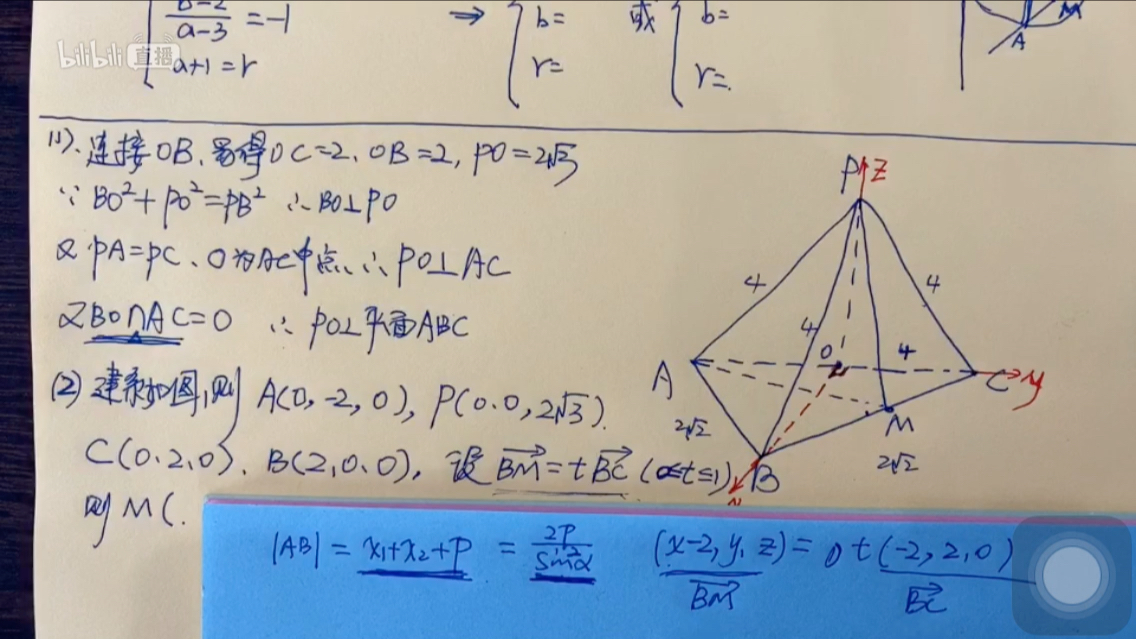 b-2/a-3 = -1
a+1 = r
⇒ { b=
r=
或 { b=
r=.
A
M
bilibili 直播
(1). 连接OB、易得OC=2、OB=2, PO=2√3
∵ BO²+PO²=PB² ∴ BO⊥PO
又 PA=PC、O为AC中点、∴ PO⊥AC
又BO∩AC=O ∴ PO⊥平面ABC
(2) 建系如图, 则 A(0, -2, 0), P(0.0, 2√3).
C(0.2,0). B(2,0.0), 设 BM→ = t BC→ (0≤t≤1)
则 M(.
P z
4
4
4
A O 4 C y
M
2√2
B
2√2
|AB| = x₁+x₂+p = 2p/sin²α (x-2, y, z) = t(-2, 2, 0)
BM→ BC→